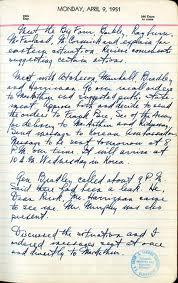 MONDAY, APRIL 9, 1951
Meet the Big Four, Barkley, Rayburn,
McFarland, McCormack and explain far
eastern situation. Receive comments
suggesting certain actions.
Meet with Acheson, Marshall, Bradley
and Harriman. Go over recall orders
to MacArthur and suggested public
statement. Approve both and decide to send
the orders to Frank Pace, Sec of the Army
for delivery to MacArthur and Ridgway.
Send message to Korean Ambassador
Message to be sent tomorrow at 8
P.M. our time. It will arrive at
10 A.M. Wednesday in Korea.
Gen. Bradley called about 9 P.M.
Said there had been a leak. He,
Dean Rusk, Mr. Harriman came
to see me. Mr. Murphy was also
present.
Discussed the situation and I
ordered messages sent at once
and directly to MacArthur.